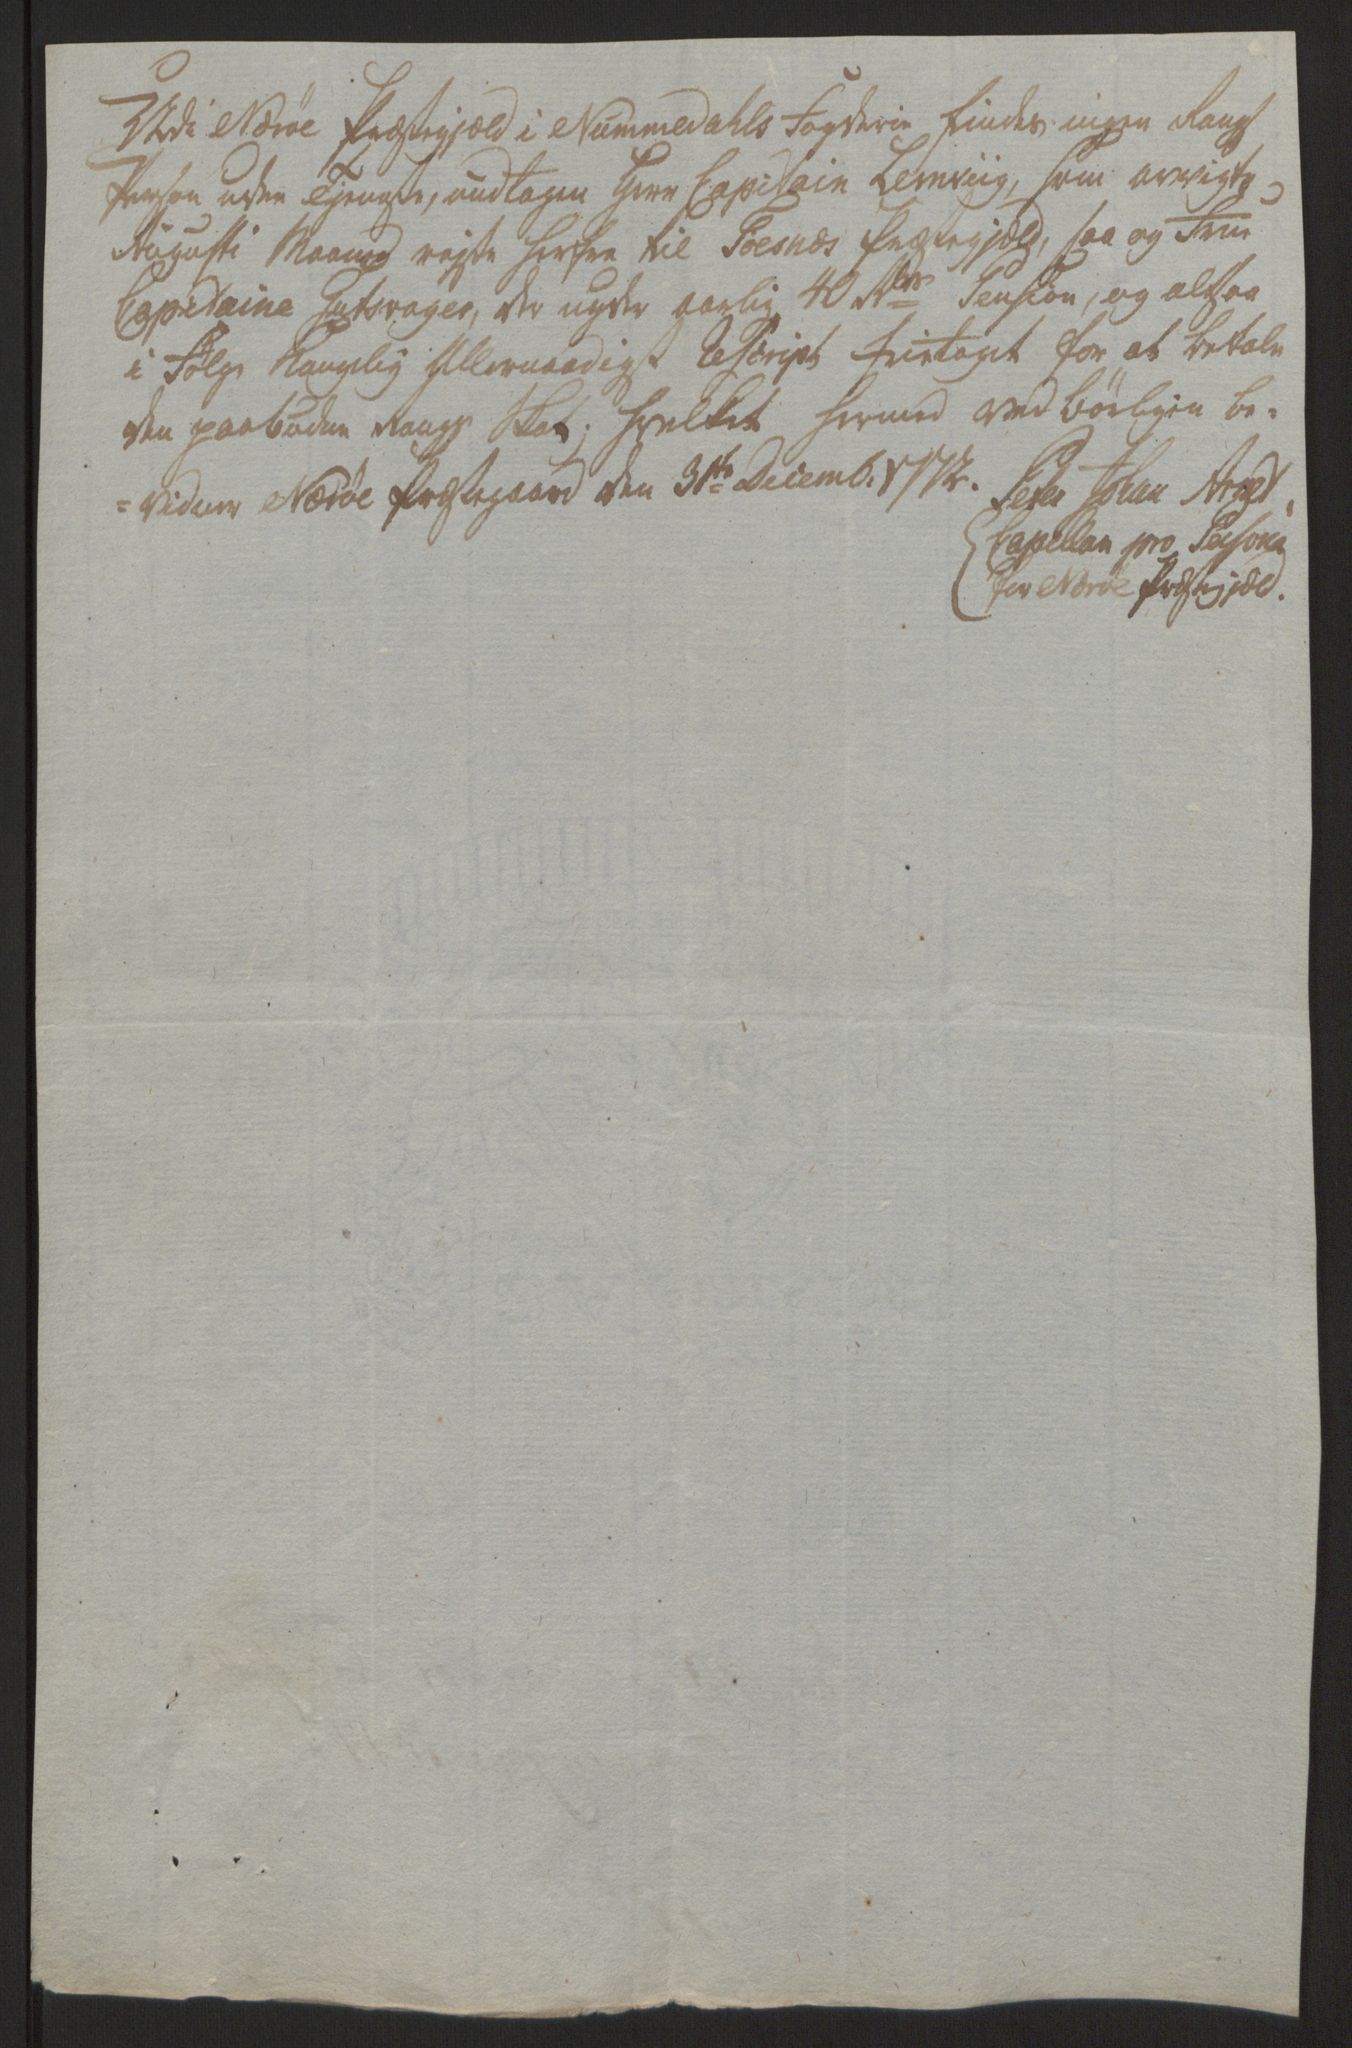 Udi Nærøe Præstegjæld i Nummedahls Fogderie findes ingen Rangs
Person uden Tjeneste, undtagen Herr Capitain Lemviig, som avvigte
Augusti Maaned rejste herfra til Foesnæs Præstegjæld, saa og Frue
Capitaine Hatsrager, der nyder aarlig 40 Rdr Pension, og altsaa
i Følge Kongelig Allernaadigst Rescript fritaget for at betale
den paabudne Rangs Skat; hvilket hermed ved børligen be-
=vidner Nærøe Præstegaard den 31te Decemb. 1772. Peter Johan Arndt,
Capellan pro Persona
for Nærøe Præstegjæld.